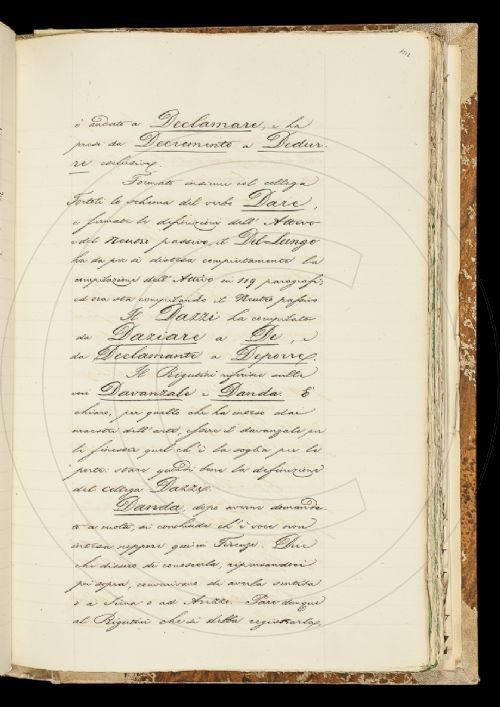 è andato a Declamare, e ha
preso da Decremento a Dedur-
re esclusive.
Formato insieme col collega
Tortoli lo schema del verbo Dare,
e fermate le definizioni dell'Attivo
e del Neutro passivo, il Del-Lungo
ha da per sè distesa compiutamente la
compilazione dell'Attivo in 119 paragrafi;
ed ora sta compilando il Neutro passivo
Il Dazzi ha compilato
da Daziare a De, e
da Declamante a Deporre.
Il Rigutini riferisce sulle
voci Davanzale e Danda. È
chiaro, per quello che ha inteso dai
maestri dell'arte, essere il davanzale per
le finestre quel ch'è la soglia per le
porte: stare quindi bene la definizione
del collega Dazzi.
Danda, dopo averne domanda-
to a molti, si conclude ch'è voce non
intesa neppure qui in Firenze. Due
che dissero di conoscerla, ripensandoci
poi sopra, convennero di averla sentita
o a Siena o ad Arezzo. Pare dunque
al Rigutini che si debba registrarla,